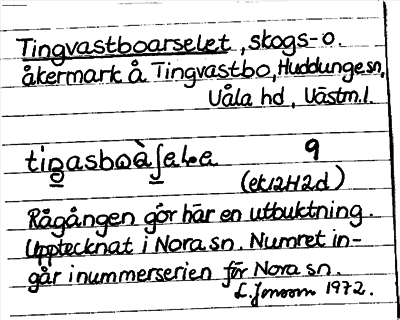 Tingvastboarselet, skogs- o.
åkermark å Tingvastbo, Huddunge sn,
Våla hd, Västm.l.
9
(ek12H2d)
Rågången gör här en utbuktning.
Upptecknat i Nora sn. Numret in-
går i nummerserien för Nora sn.
1972.